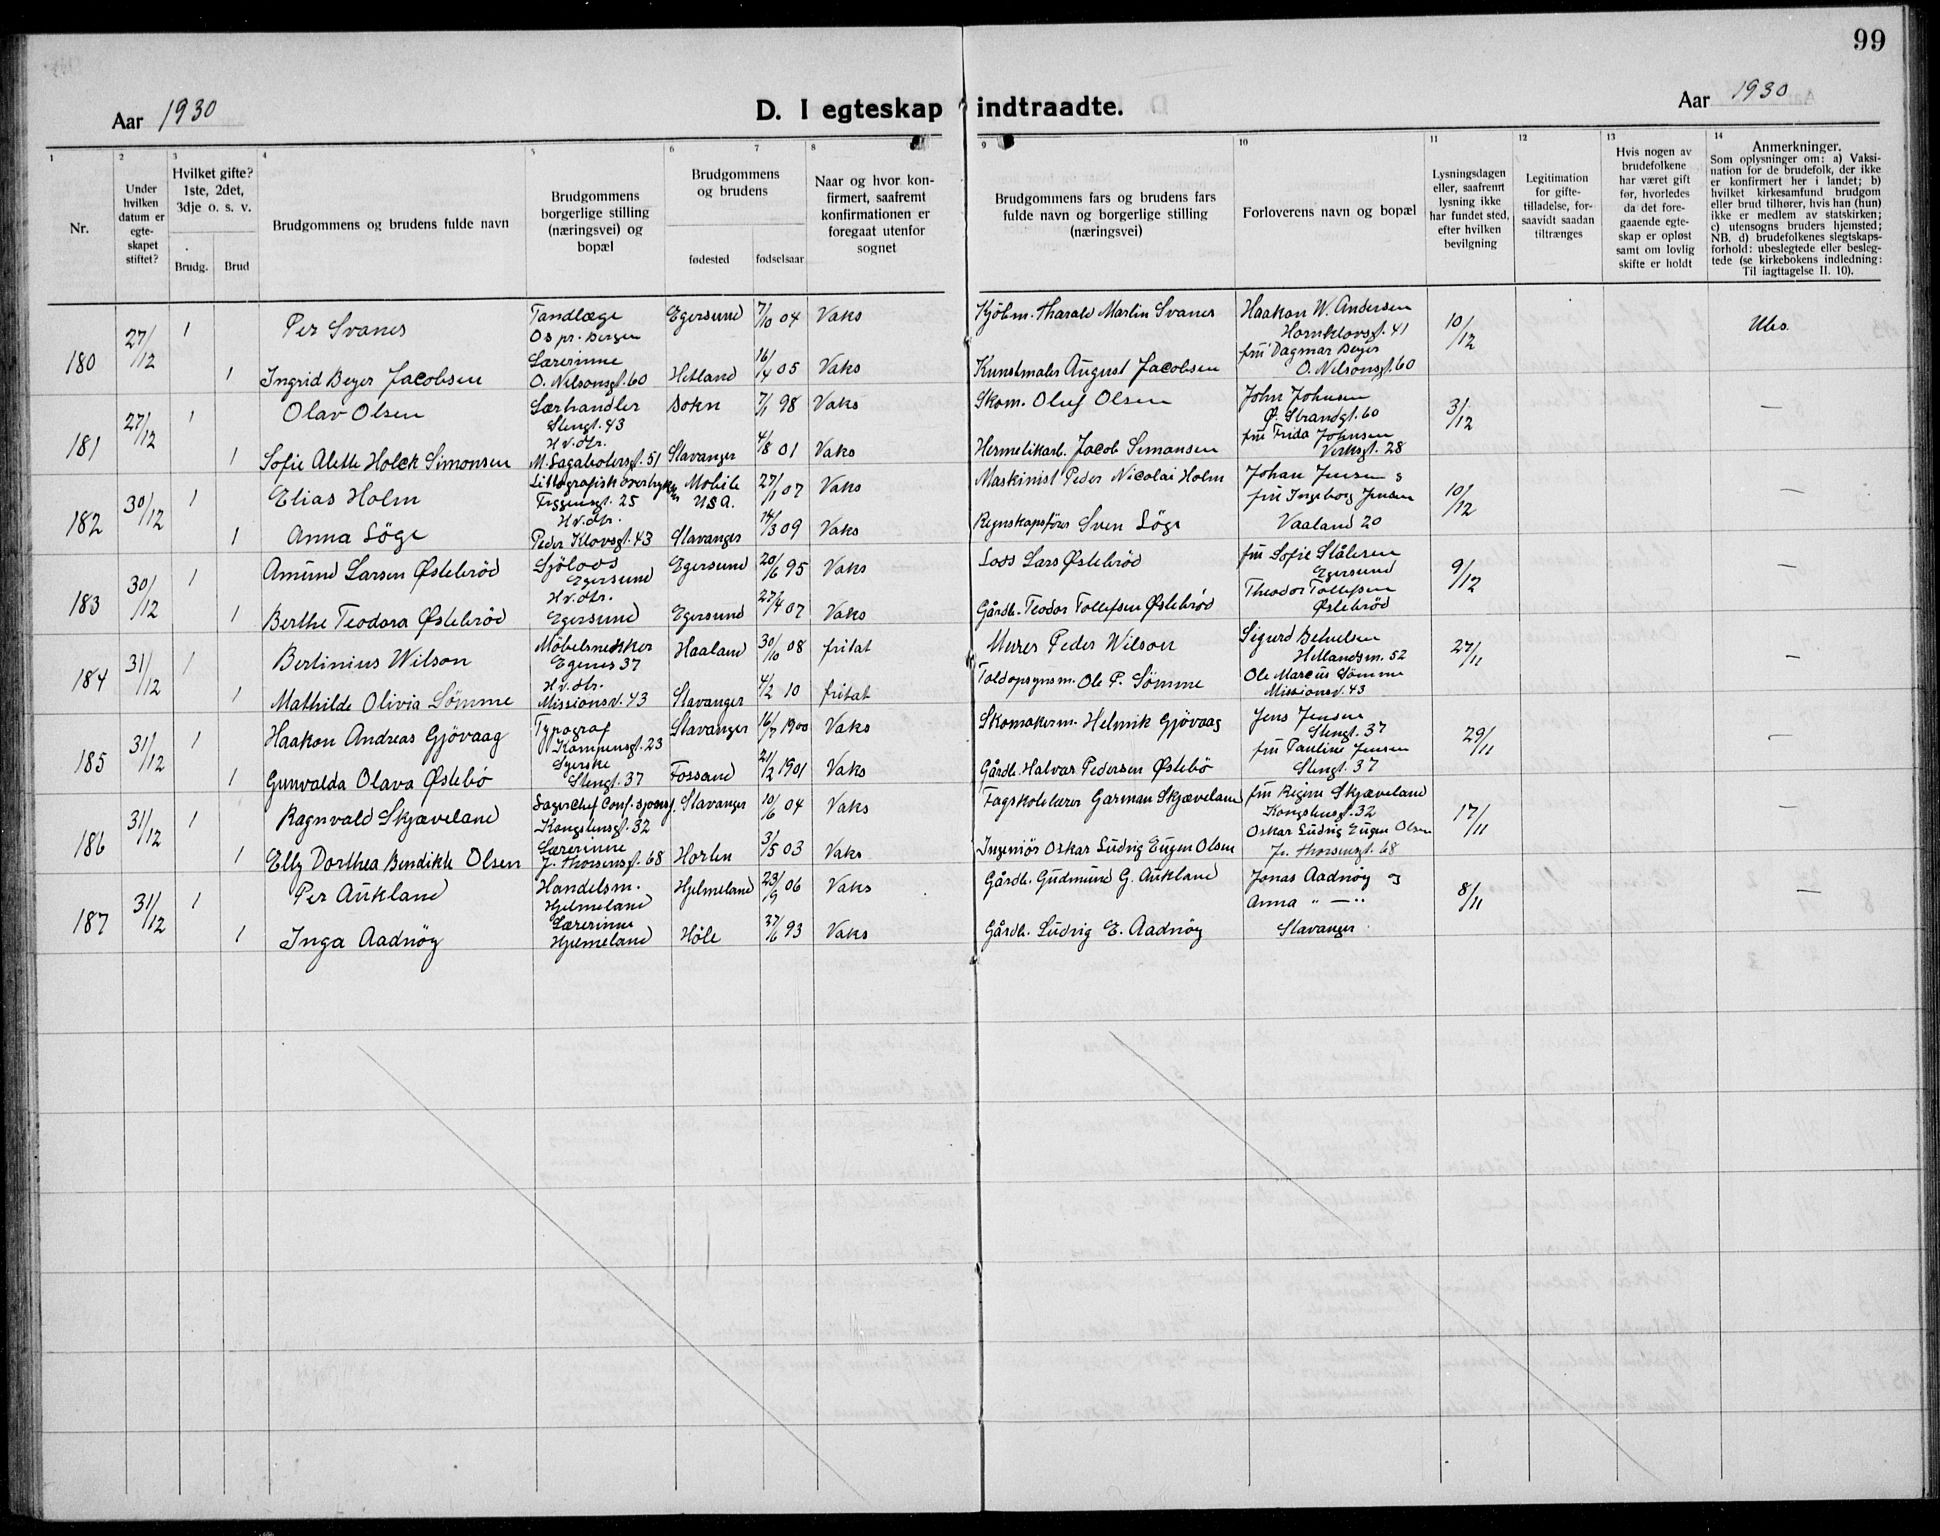 99
Aar 1930
D. I egteskap indtraadte.
Aar 1930
1
2
3
4
5
6
7
8
9
10
11
12
13
14
Nr.
Under hvilken datum er egte-skapet stiftet?
Hvilket gifte? 1ste, 2det, 3dje o. s. v.
Brudg.
Brud
Brudgommens og brudens fulde navn
Brudgommens borgerlige stilling (næringsvei) og bopæl
Brudgommens og brudens
fødested
fødselsaar
Naar og hvor kon-firmert, saafremt konfirmationen er foregaat utenfor sognet
Brudgommens fars og brudens fars fulde navn og borgerlige stilling (næringsvei)
Forloverens navn og bopæl
Lysningsdagen eller, saafremt lysning ikke har fundet sted, efter hvilken bevilgning
Legitimation for gifte-tilladelse, for-saavidt saadan tiltrænges
Hvis nogen av brudefolkene har været gift før, hvorledes da det fore-gaaende egte-skap er opløst samt om lovlig skifte er holdt
Anmerkninger.
Som oplysninger om: a) Vaksi-nation for de brudefolk, der ikke er konfirmert her i landet; b) hvilket kirkesamfund brudgom eller brud tilhører, hvis han (hun) ikke er medlem av statskirken; c) utensogns bruders hjemsted; NB. d) brudefolkenes slegtskaps-forhold: ubeslegtede eller besleg-tede (se kirkebokens indledning: Til iagttagelse II. 10).
180 27/12 1 Per Svanes Tandlæge Os pr. Bergen Egersund 7/10 04 Vaks Kjöbm. Tharald Martin Svanes Haakon W. Andersen Hornklovsgt. 41 10/12 Ubs.
1 Ingrid Beyer Jacobsen Lærerinne O. Nilsonsgt. 60 Hetland 16/4 05 Vaks Kunstmaler August Jacobsen fru Dagmar Beyer O. Nilsonsgt. 60
181 27/12 1 Olav Olsen Lærhandler Stengt. 43 Bokn 7/1 98 Vaks Skom. Oluf Olsen John Johnsen Ø. Strandgt. 60 3/12 —
1 Sofie Alette Holck Simonsen Hv. dtr. M. Lagabötersgt. 51 Stavanger 4/8 01 Vaks Hermetikarb. Jacob Simonsen fru Frida Johnsen Verksgt. 28
182 30/12 1 Elias Holm Littografisk overtrykker 25 Mobile USA. 27/1 07 Vaks Maskinist Peder Nicolai Holm Johan Jensen og fru Ingeborg Jensen 10/12 —
1 Anna Löge Hv. dtr. Peder Klovsgt. 43 Stavanger 14/3 09 Vaks Regnskapsförer Sven Löge Vaaland 20
183 30/12 1 Amund Larsen Østebröd Sjölods Egersund Egersund 20/6 95 Vaks Lods Lars Østebröd fru Sofie Stålesen Egersund 9/12 —
1 Berthe Teodora Østebröd Hv. dtr. Egersund Egersund 27/4 07 Vaks Gårdb. Teodor Tollefsen Østebröd Theodor Tollefsen Østebröd
184 31/12 1 Bertinius Wilson Möbelsnekker Egenes 37 Haaland 30/10 08 fritat Murer Peder Wilson Sigurd Hetlandsm. 52 27/11 —
1 Mathilde Olivia Sömme Hv. dtr. Missionsv. 43 Stavanger 4/2 10 fritat Toldopsynsm. Ole P. Sömme Ole Marcus Sömme Missionsv. 43
185 31/12 1 Haakon Andreas Gjövaag Typograf Kampensgt. 23 Stavanger 16/7 1900 Vaks Skomakerm. Helmik Gjövaag Jens Jensen Stengt. 37 29/11 —
1 Gunvalda Olava Østebö Syerske Stengt. 37 Fossand 21/2 1901 Vaks Gårdb. Halvar Pedersen Østebö fru Pauline Jensen Stengt. 37
186 31/12 1 Ragnvald Skjæveland Lagerchef Kongstensgt. 32 Stavanger 10/6 04 Vaks Fagskolelærer Garman Skjæveland fru Regine Skjæveland Kongstensgt. 32 17/11 —
1 Elly Dorthea Bendikte Olsen Lærerinne J. Thorsensgt. 68 Horten 31/5 03 Vaks Ingeniör Oskar Ludvig Eugen Olsen Oskar Ludvig Eugen Olsen J. Thorsensgt. 68
187 31/12 1 Per Aukland Handelsm. Hjelmeland Hjelmeland 23/9 06 Vaks Gårdb. Gudmund G. Aukland Jonas Aadnöy og 8/11 —
1 Inga Aadnöy Lærerinne Hjelmeland Höle 27/6 93 Vaks Gårdb. Ludvig E. Aadnöy Anna " — " Stavanger